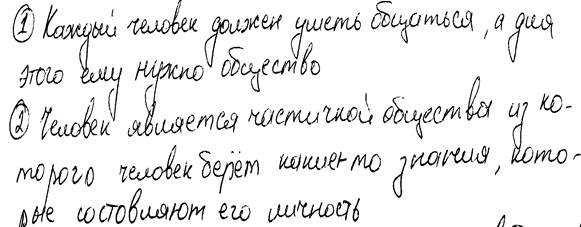 ① Каждый человек должен уметь общаться, а для
этого ему нужно общество
② Человек является частичкой общества из ко-
торого человек берёт какие-то знания, кото-
рые состовляют его личность